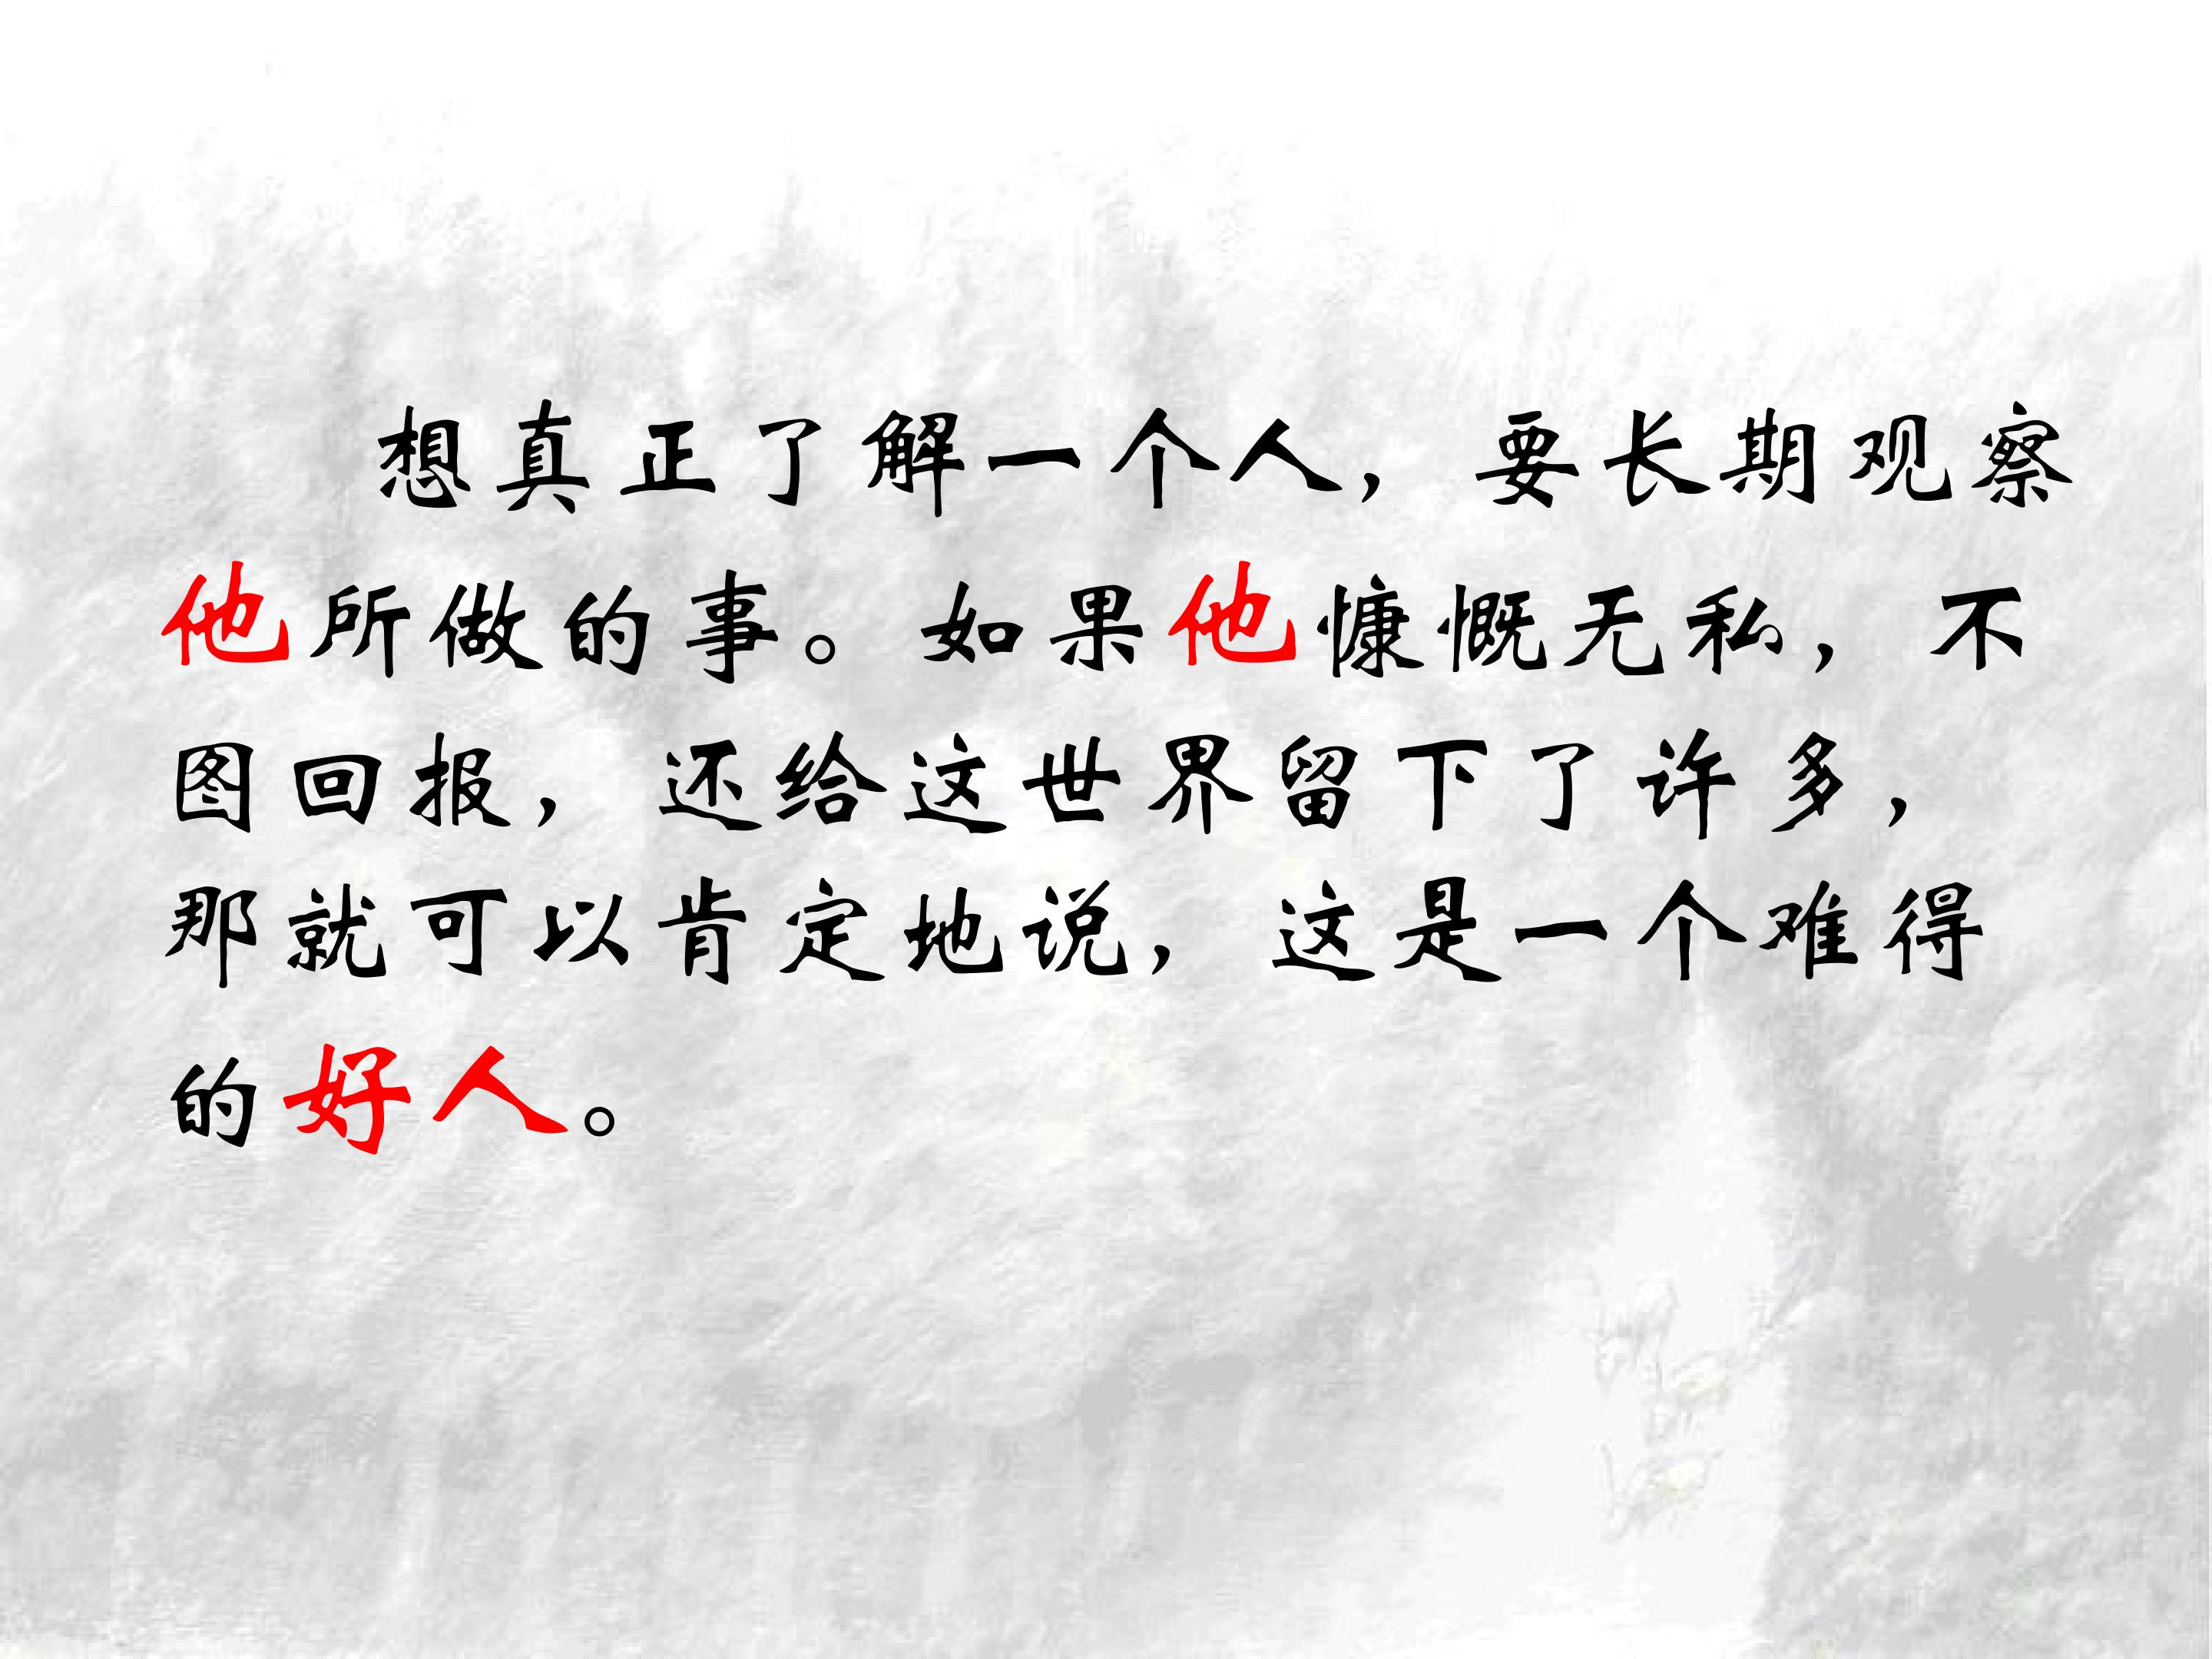 想真正了解一个人，要长期观察
他所做的事。如果他慷慨无私，不
图回报，还给这世界留下了许多，
那就可以肯定地说，这是一个难得
的好人。